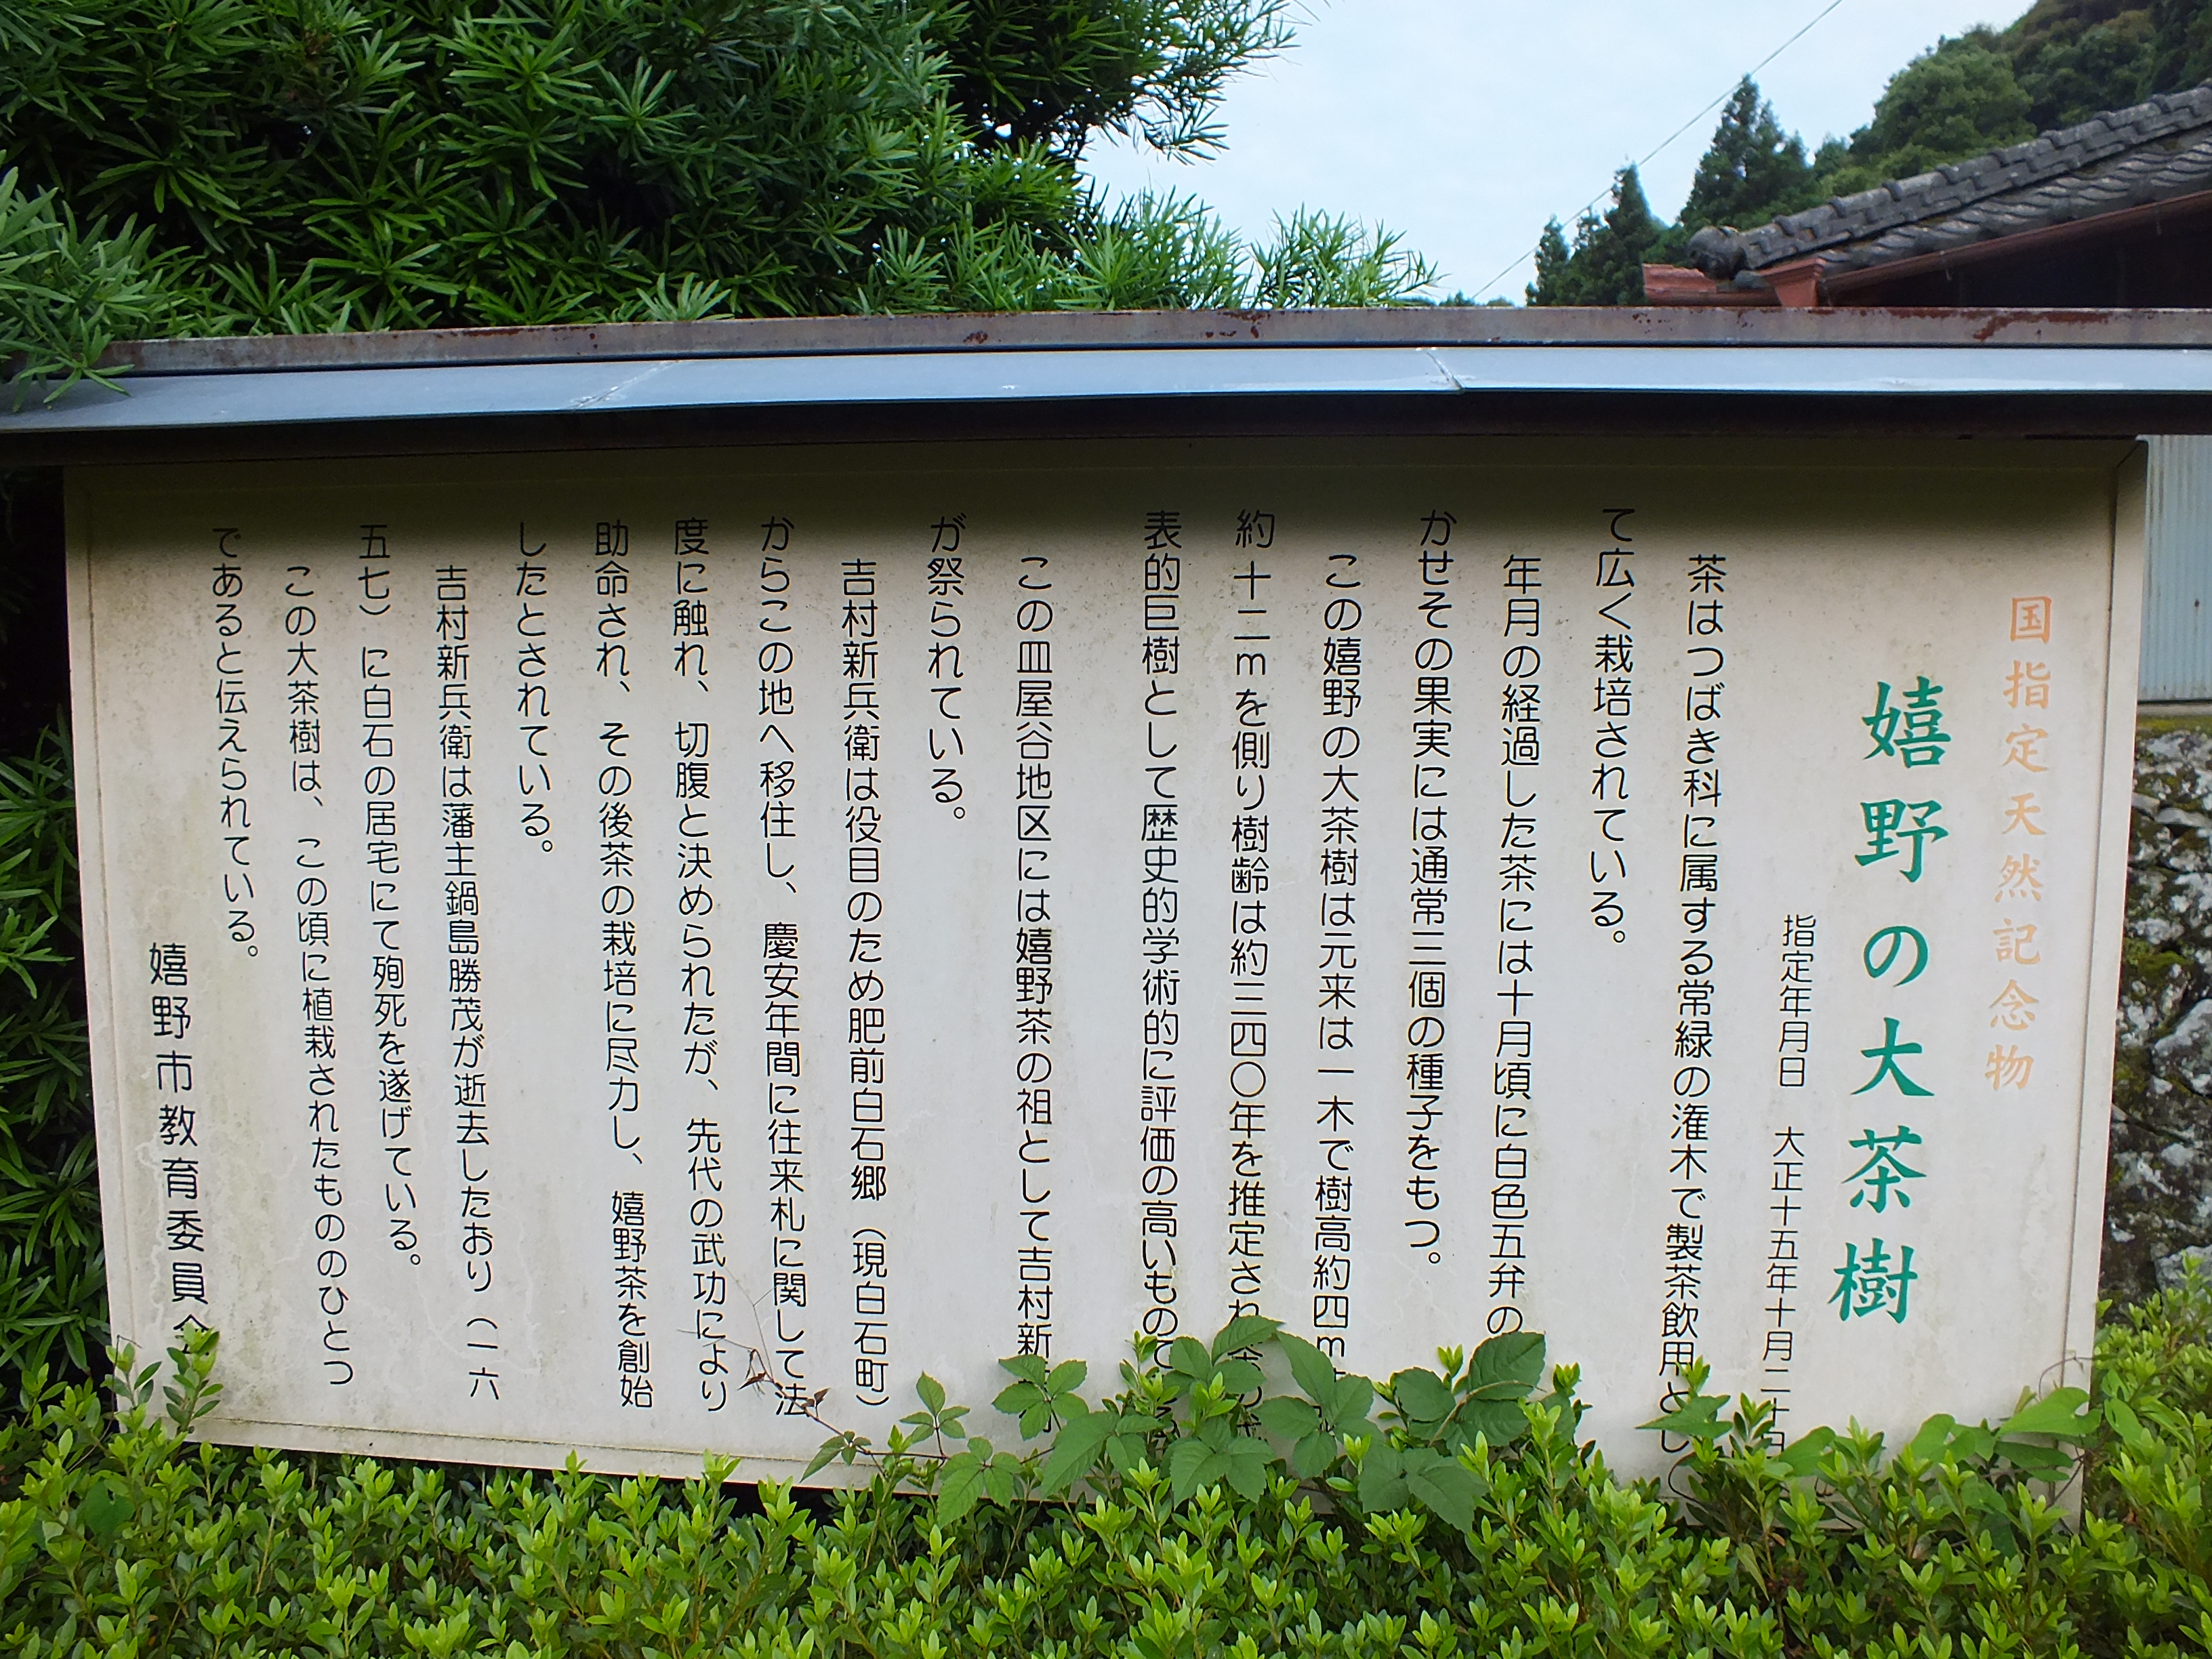 国指定天然記念物
嬉野の大茶樹
指定年月日 大正十五年十月二十日
茶はつばき科に属する常緑の潅木で製茶飲用とし
て広く栽培されている。
年月の経過した茶には十月頃に白色五弁の
かせその果実には通常三個の種子をもつ。
この嬉野の大茶樹は元来は一木で樹高約四m
約十二mを側り樹齢は約三四〇年を推定され茶の
表的巨樹として歴史的学術的に評価の高いもので
この皿屋谷地区には嬉野茶の祖として吉村新
が祭られている。
吉村新兵衛は役目のため肥前白石郷（現白石町）
からこの地へ移住し、慶安年間に往来札に関して法
度に触れ、切腹と決められたが、先代の武功により
助命され、その後茶の栽培に尽力し、嬉野茶を創始
したとされている。
吉村新兵衛は藩主鍋島勝茂が逝去したおり（一六
五七）に白石の居宅にて殉死を遂げている。
この大茶樹は、この頃に植栽されたもののひとつ
であると伝えられている。
嬉野市教育委員会